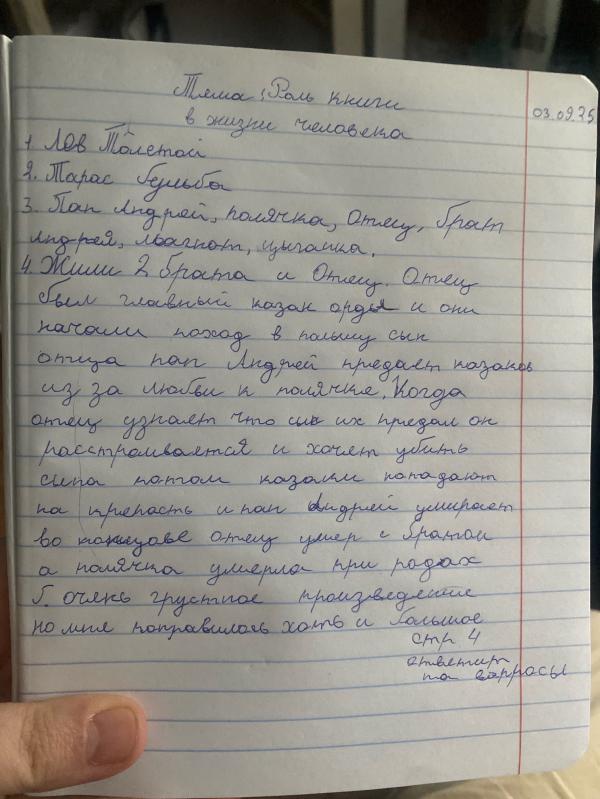 Тема: Роль книги
в жизни человека
03.09.25
1 Лев Толстой
2. Тарас бульба
3. Пан Андрей, полячка, Отец, брат
Андрея, цыганка.
4. Жили 2 брата и Отец. Отец
был главный казак орды и они
начали поход в польшу сын
отца пан Андрей предает казаков
из за любви к полячке. Когда
отец узнает что их предал он
расстроивается и хочет убить
сына потом казаки нападают
на крепасть и пан Андрей умирает
во отец умер с братом
а полячка умерла при родах
5. очень грустное произведение
но мне понравилось хоть и большое
стр 4
ответит
на вапрасы